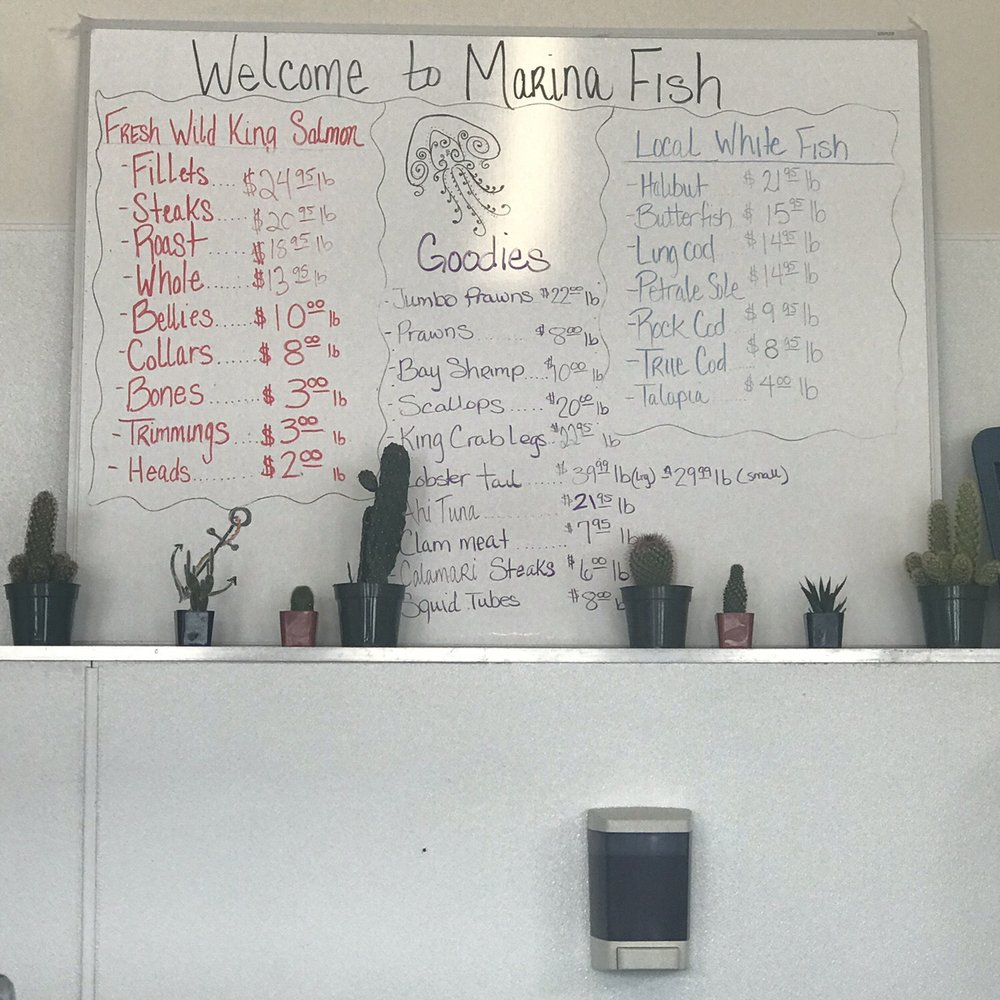 Welcome to Marina Fish
Fresh Wild King Salmon
- Fillets.... $24.95 lb
- Steaks...... $20.95 lb
- Roast ...... $18.95 lb
- Whole...... $13.95 lb
- Bellies...... $10.00 lb
- Collars...... $8.00 lb
- Bones...... $3.00 lb
- Trimmings.... $3.00 lb
- Heads...... $2.00 lb
Goodies
- Jumbo Prawns $22.00 lb
- Prawns ........ $8.00 lb
- Bay Shrimp... $10.00 lb
- Scallops..... $20.00 lb
- King Crab Legs.. $22.95 lb
Lobster tail ...... $39.99 lb (lrg) $29.99 lb (small)
Ahi Tuna............ $21.95 lb
Clam meat ........ $7.95 lb
Calamari Steaks $6.00 lb
Squid Tubes $8.00 lb
Local White Fish
- Halibut $21.95 lb
- Butterfish $15.95 lb
- Ling cod $14.95 lb
- Petrale Sole $14.95 lb
- Rock Cod $9.95 lb
- True Cod $8.95 lb
- Talapia $4.00 lb